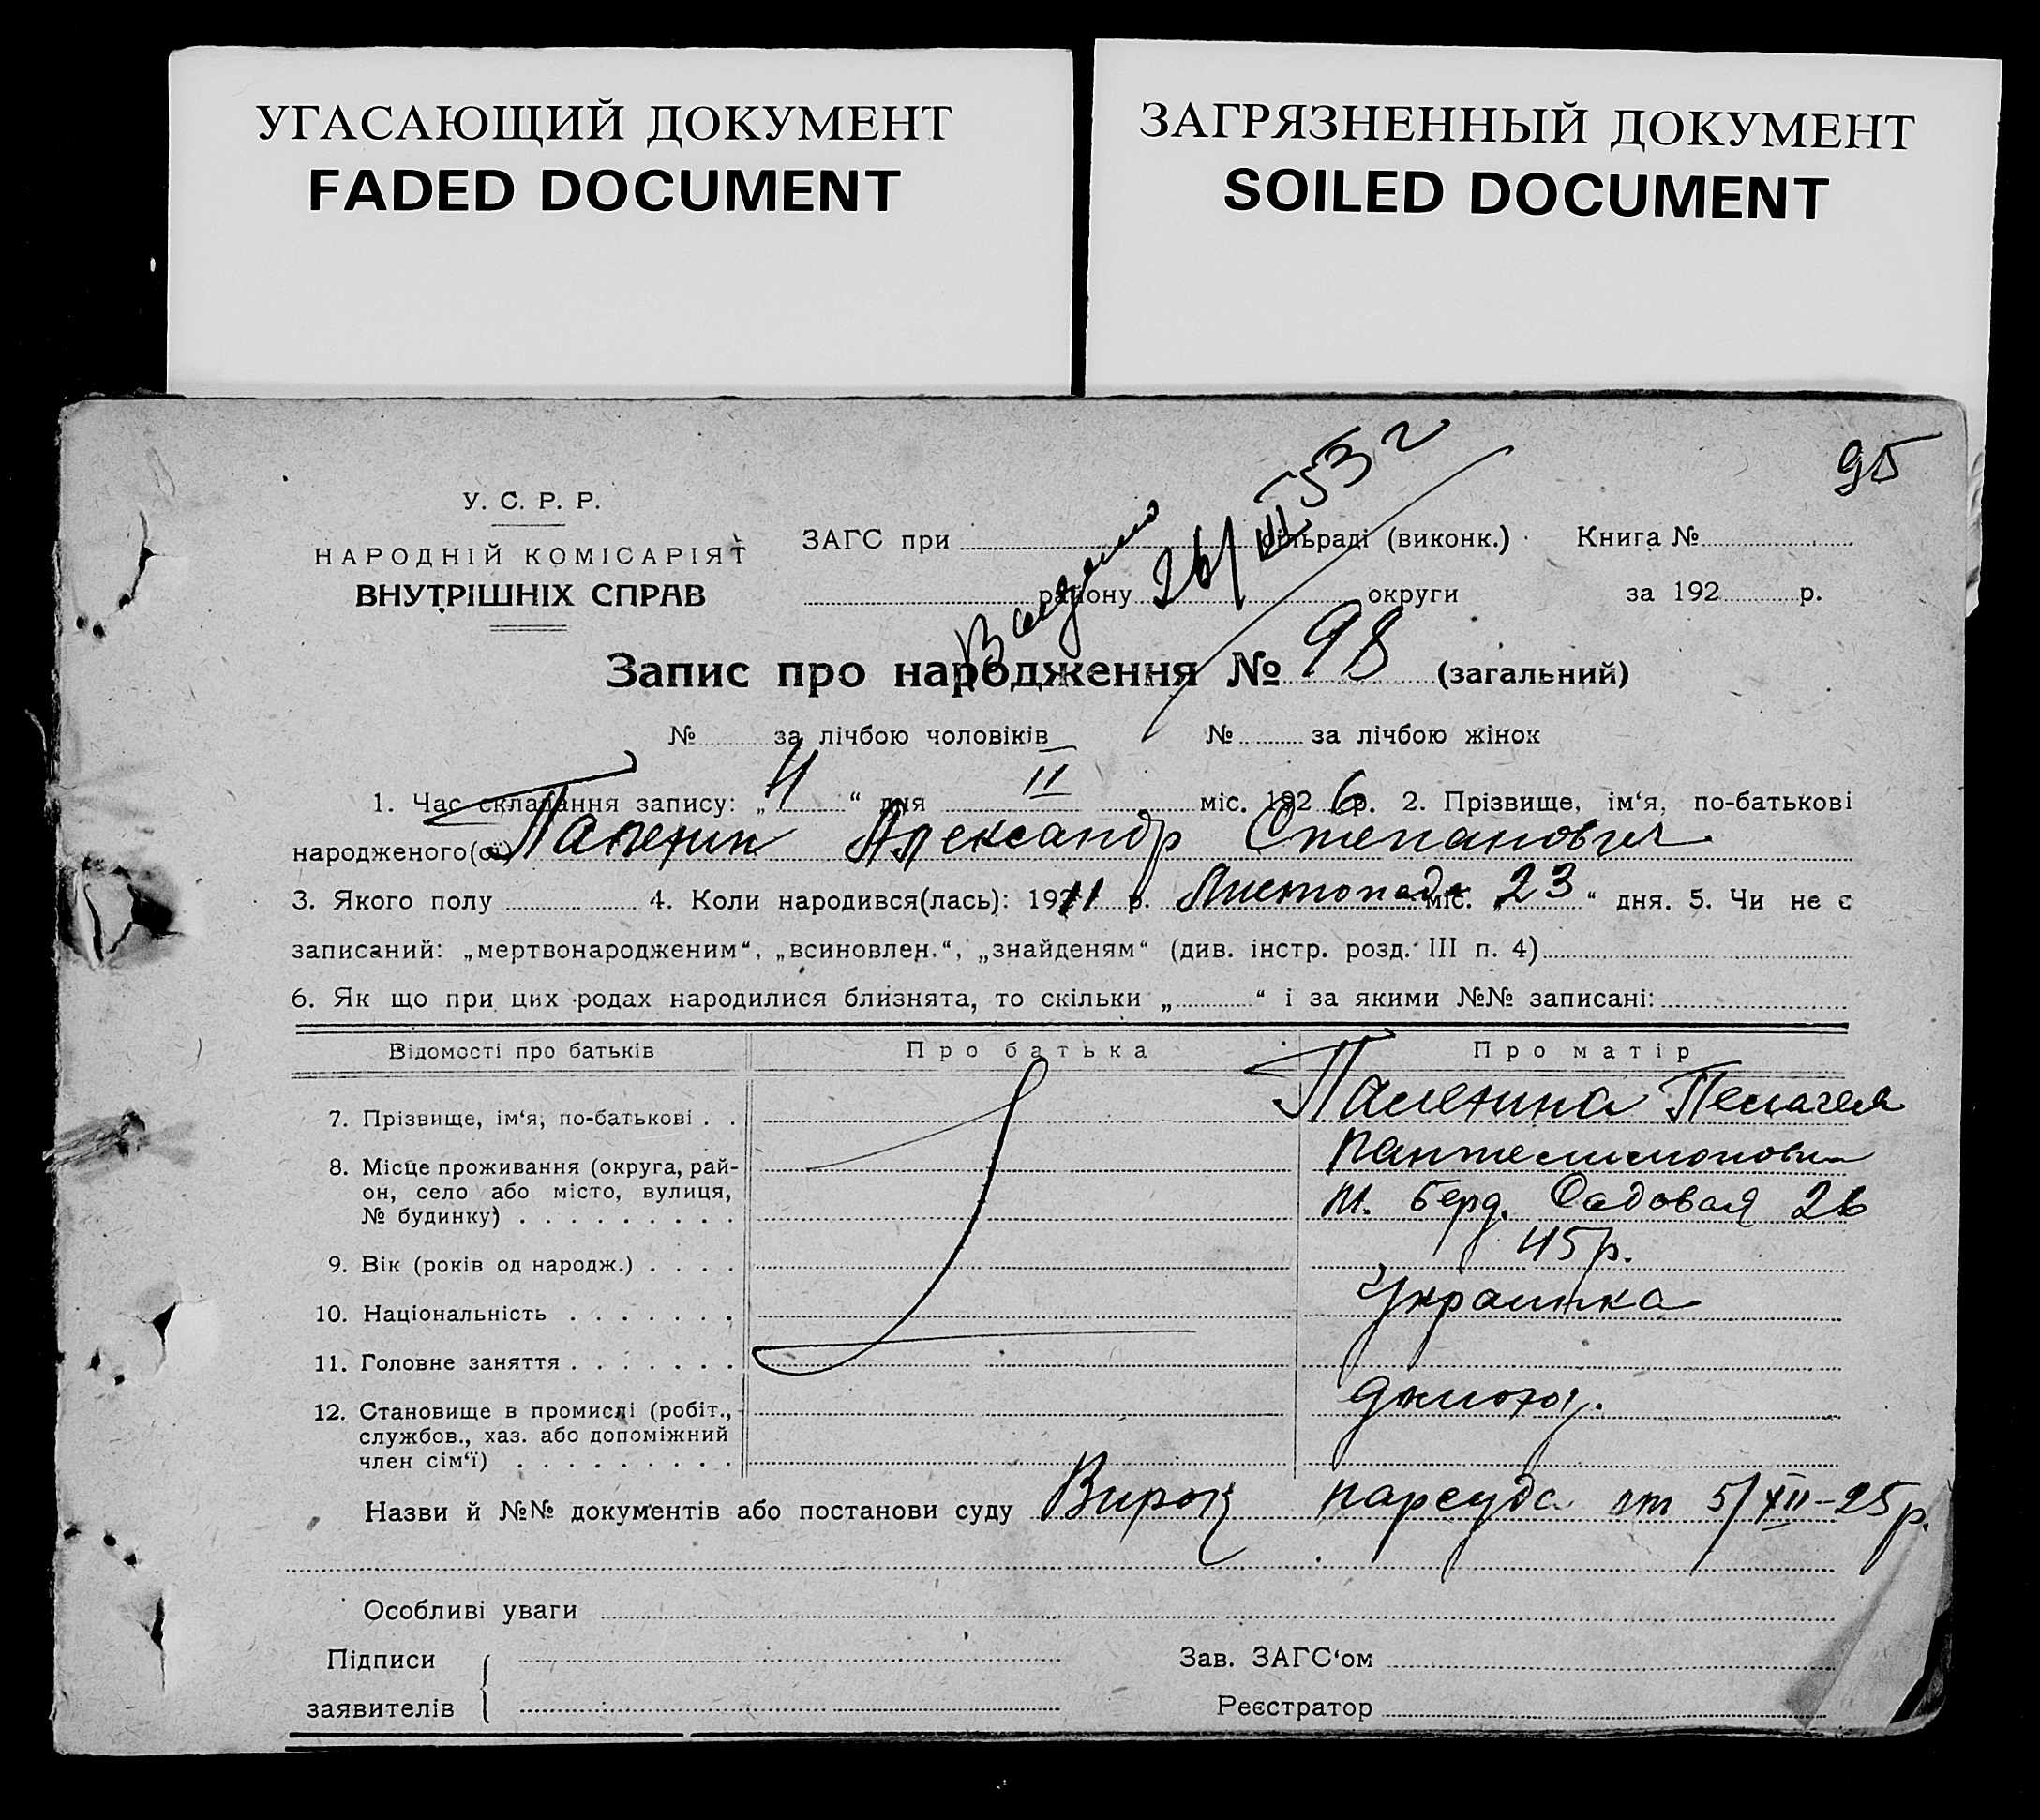 УГАСАЮЩИЙ ДОКУМЕНТ
FADED DOCUMENT
ЗАГРЯЗНЕННЫЙ ДОКУМЕНТ
SOILED DOCUMENT
95
У. С. Р. Р.
НАРОДНІЙ КОМІСАРІЯТ
ВНУТРІШНІХ СПРАВ
ЗАГС при сільраді (виконк.) Книга №
району округи за 192 р.
26/III 53 г
Запис про народження № 98 (загальний)
№ за лічбою чоловіків № за лічбою жінок
1. Час складання запису: „4“ дня II міс. 1926 р. 2. Прізвище, ім‘я, по-батькові
народженого(ої) Александр Степанович
3. Якого полу 4. Коли народився(лась): 1911 р. Листопада міс. „23“ дня. 5. Чи не є
записаний: „мертвонародженим“, „всиновлен.“, „знайденям“ (див. інстр. розд. III п. 4)
6. Як що при цих родах народилися близнята, то скільки „ “ і за якими №№ записані:
Відомості про батьків Про батька Про матір
7. Прізвище, ім‘я, по-батькові . . Пелагея
Пантелимоновна
8. Місце проживання (округа, рай-
он, село або місто, вулиця,
№ будинку) . . . . . . . . . м. Берд. Садовая 26
9. Вік (років од народж.) . . . . 45 р.
10. Національність . . . . . . . Украинка
11. Головне заняття . . . . . . .
12. Становище в промислі (робіт.,
службов., хаз. або допоміжний
член сім‘ї) . . . . . . . . .
Назви й №№ документів або постанови суду Вирок нарсуда от 5/XII-25 р.
Особливі уваги
Підписи
заявителів
Зав. ЗАГС‘ом
Реєстратор